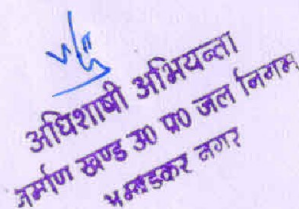 अधिशाषी अभियन्ता
निर्माण खण्ड उ0 प्र0 जल निगम
अम्बेडकर नगर